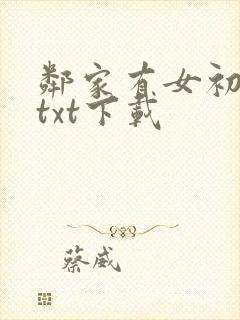 鄰家有女初
txt下載
蔡威